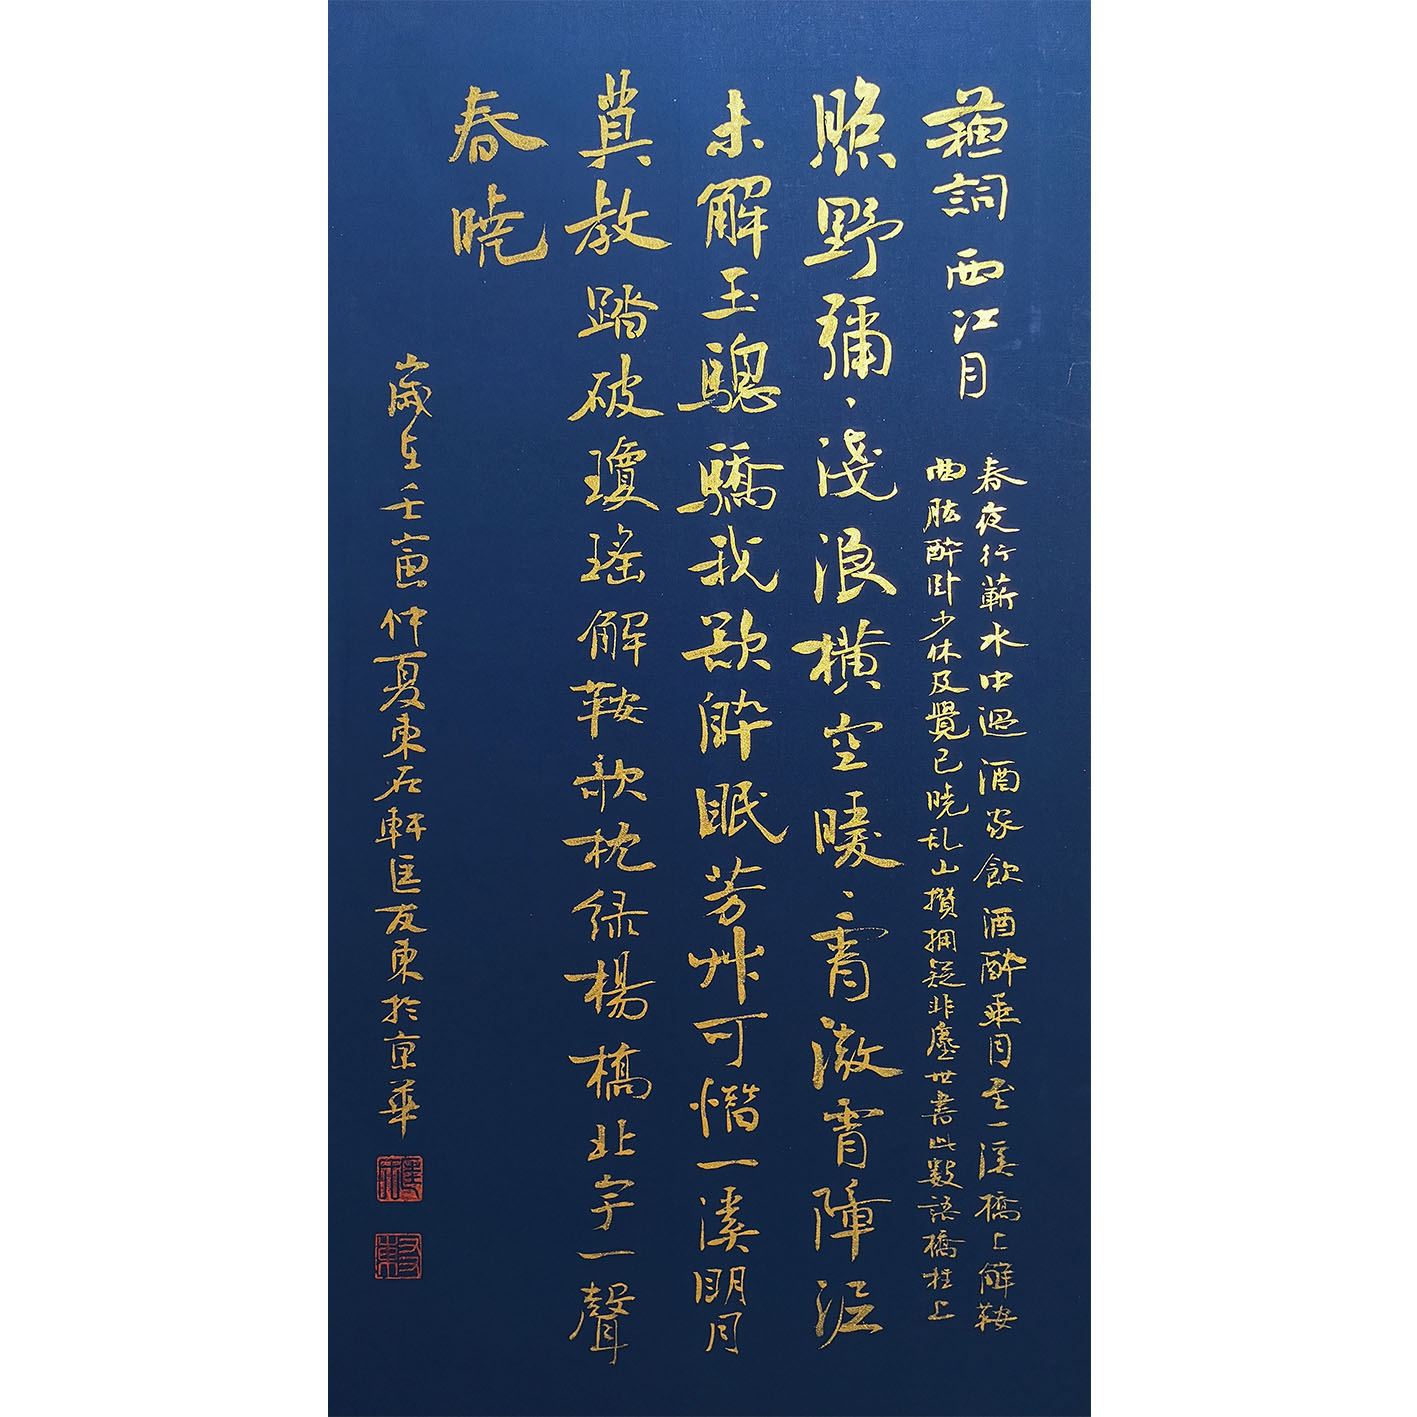 蘓詞 西江月
春夜行蘄水中過酒家飲酒醉乘月至一溪橋上解鞍
曲肱醉卧少休及覺已曉乱山攢拥疑非塵世書此數語橋柱上
照野彌〻淺浪橫空暖〻霄澂霄障泥
未解玉驄驕我欲醉眠芳艸可惜一溪明月
莫教踏破瓊瑤解鞍欹枕緑楊橋杜宇一聲
春曉
歲在壬寅仲夏東石軒匡友東於京華